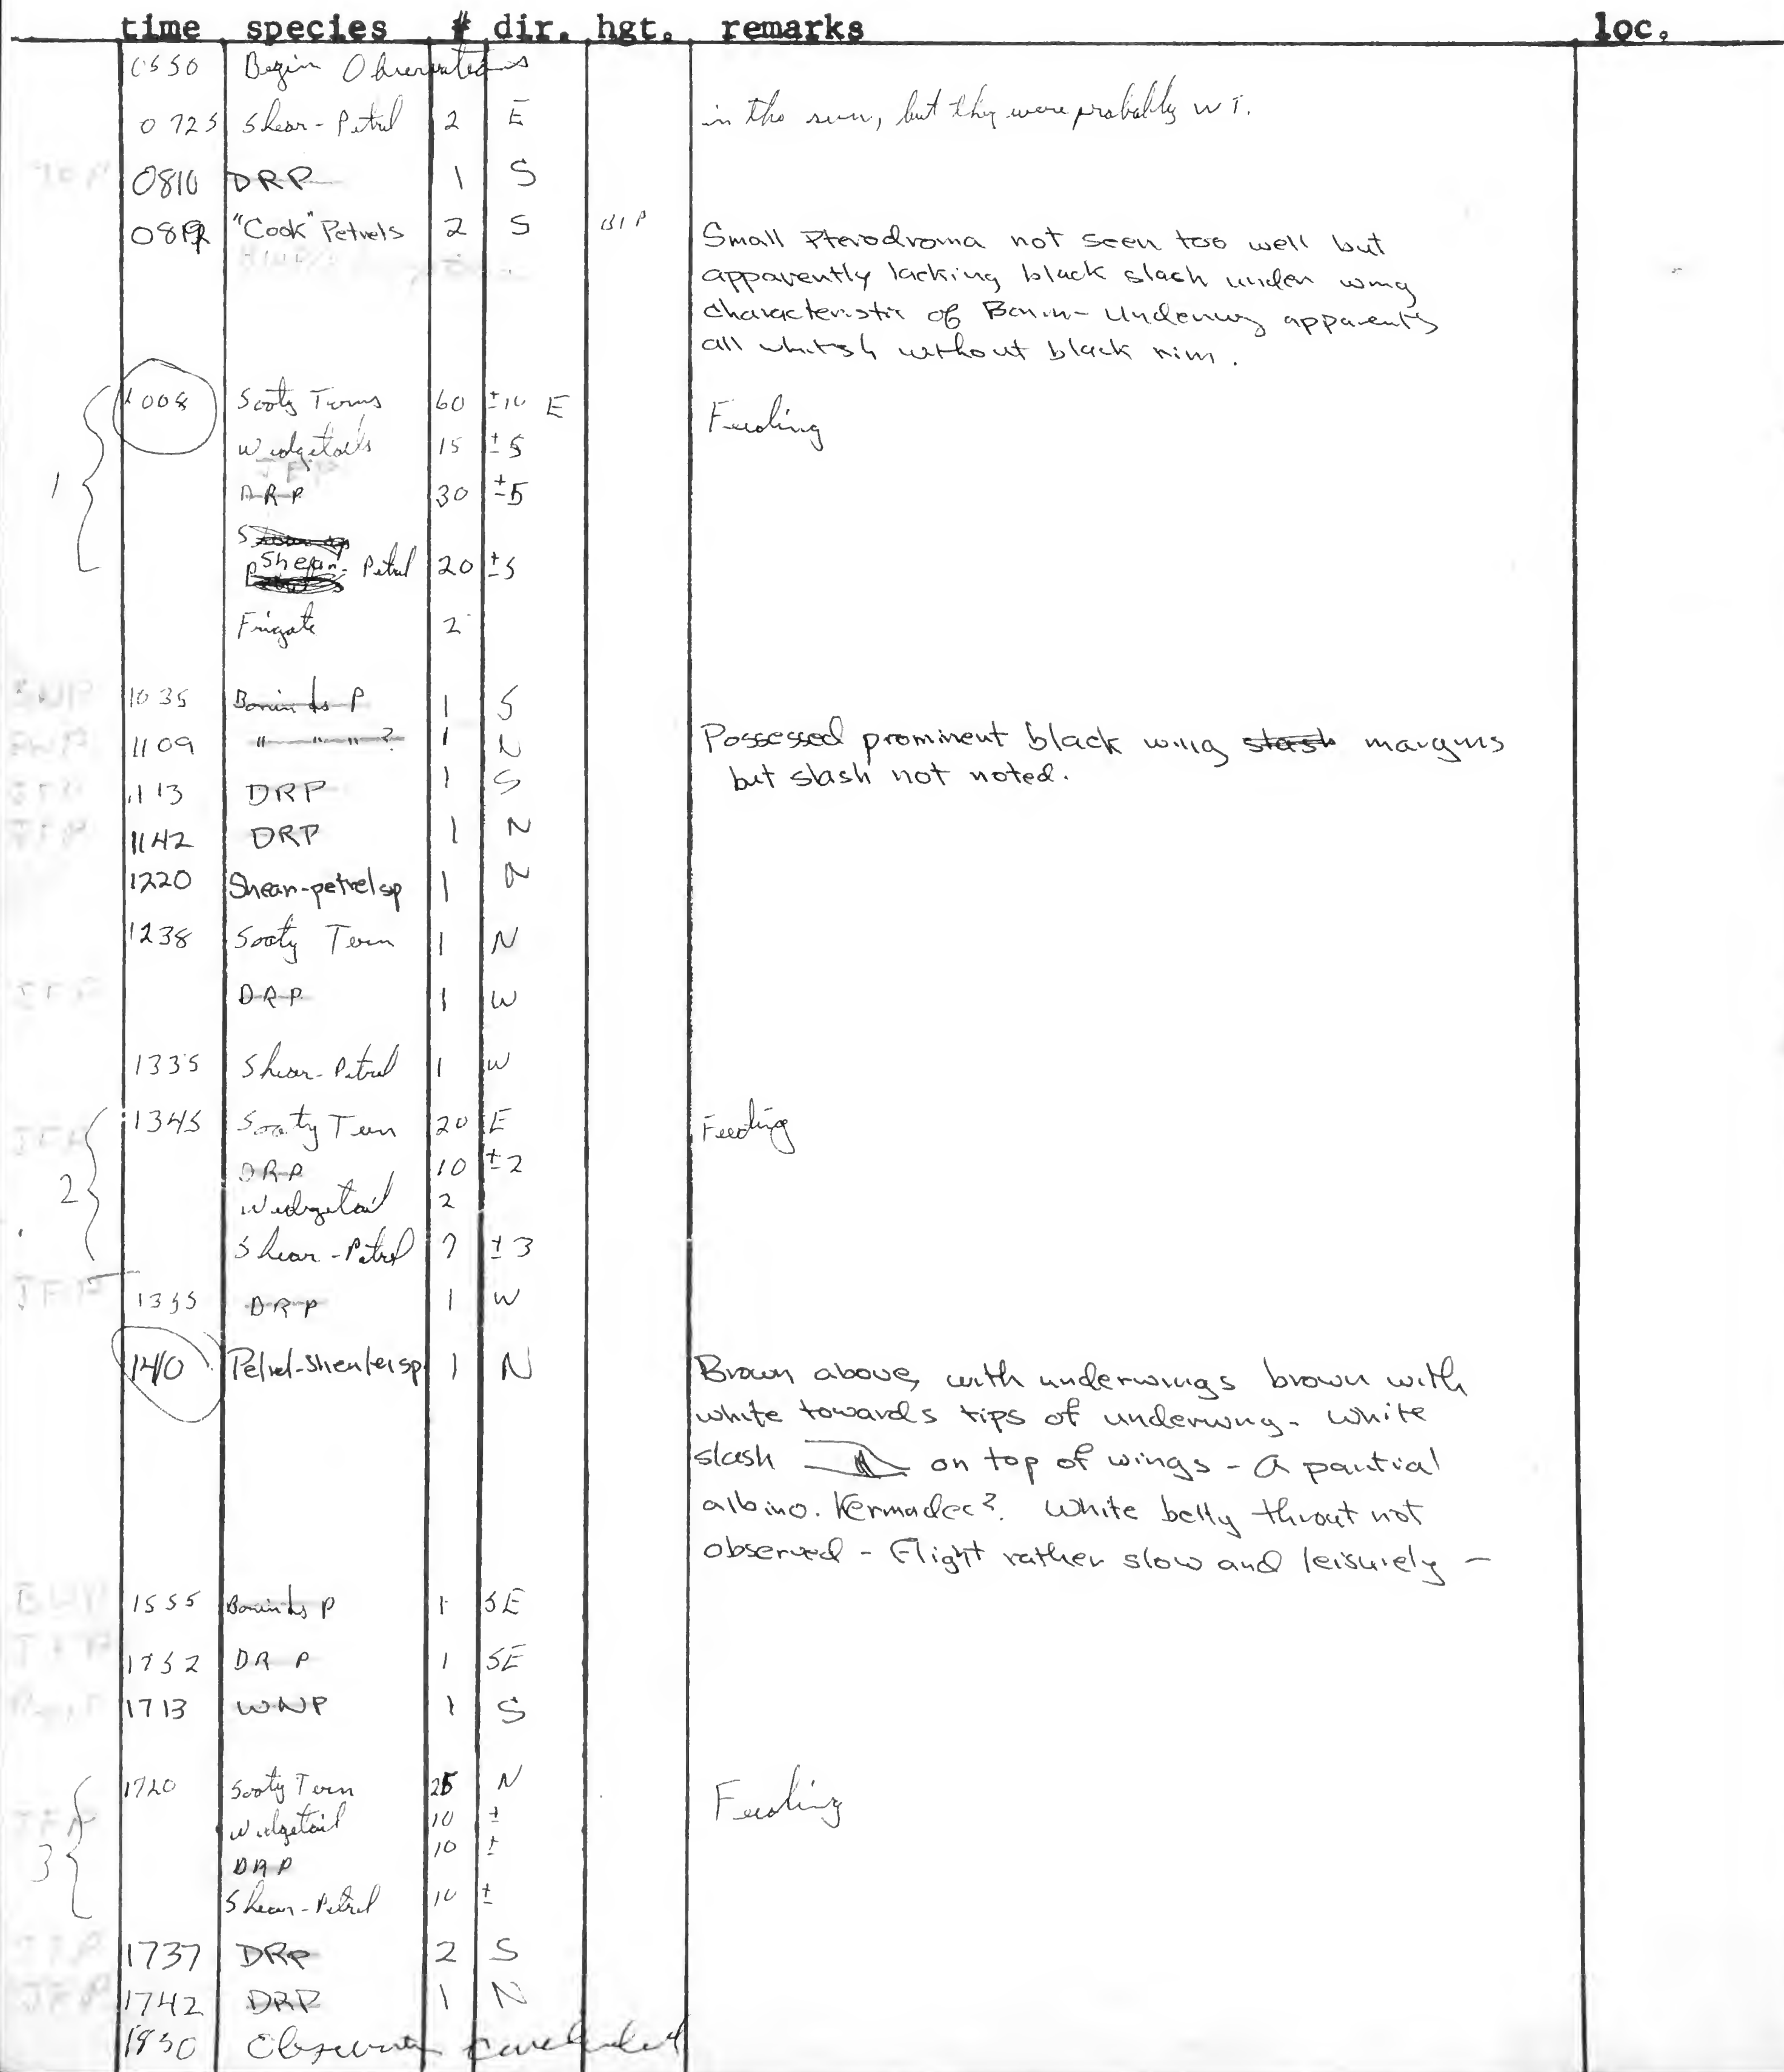 time species # dir. hgt. remarks loc.
0550 Begin Observations
0725 Shear-Petrel 2 E in the sun, but they were probably WT.
0810 DRP 1 S
0812 "Cook" Petrels 2 S Small Pterodroma not seen too well but
apparently lacking black slash under wing
characteristic of Bonin- Underwing apparently
all whitish without black rim.
1008 Sooty Terns 60 ±10 E Feeding
Wedgetails 15 ±5
1 DRP 30 ±5
Shear-Petrel 20 ±5
Frigate 2
1035 Bonin Is P 1 S
1109 " " " ? 1 N Possessed prominent black wing slash margins
but slash not noted.
1113 DRP 1 S
1142 DRP 1 N
1220 Shear-petrel sp 1 N
1238 Sooty Tern 1 N
DRP 1 W
1335 Shear-Petrel 1 W
1345 Sooty Tern 20 E Feeding
DRP 10 ±2
2 Wedgetail 2
Shear-Petrel 7 ±3
JFP 1355 DRP 1 W
1410 Petrel-Shear sp 1 N Brown above, with underwings brown with
white towards tips of underwing. White
slash on top of wings - A partial
albino. Kermadec? White belly throat not
observed - Flight rather slow and leisurely -
1555 Bonin Is P 1 SE
DRP 1 SE
1713 WNP 1 S
1720 Sooty Tern 25 N Feeding
Wedgetail 10 ±
10 ±
3 DRP
Shear-Petrel 10 ±
1737 DRP 2 S
1742 DRP 1 N
1830 Observation concluded